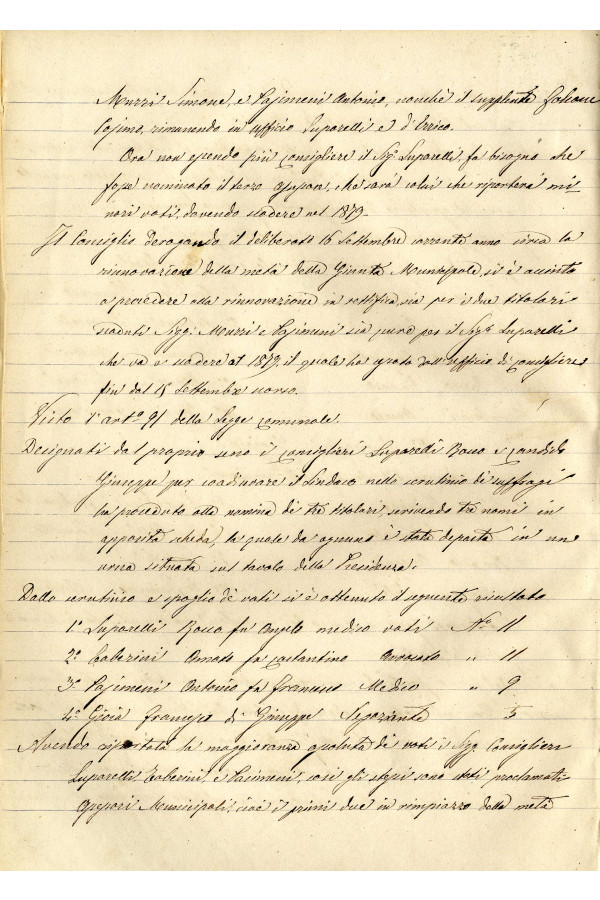 Murri Simone, e Pasimeni Antonio, nonchè il supplente
Cosimo, rimanendo in ufficio Luparelli e d'Errico.
Ora non essendo più consigliere il Sig. Luparelli, fa bisogno che
fosse nominato il terzo assessore, che sarà colui che riporterà mi
nori voti, dovendo scadere nel 1879.
Il Consiglio derogando il deliberato 16 Settembre corrente anno circa la
rinnovazione della metà della Giunta Municipale, si è accinto
a procedere alla rinnovazione in rettifica, sia per i due titolari
scaduti Sigg: Murri e Pasimeni sia pure per il Sigr Luparelli
che va a scadere al 1879, il quale ha cessato dall'ufficio di consigliere
fin dal 15 Settembre scorso.
Visto l'arto 91 della Legge Comunale.
Designati dal proprio seno i consiglieri Luparelli Rocco e Candido
Giuseppe per coadiuvare il Sindaco nello scrutinio dei suffragi
ha proceduto alla nomina di tre titolari, scrivendo tre nomi in
apposita scheda, la quale da ognuno è stata deposta in un
urna situata sul tavolo della Presidenza.
Dallo scrutinio e spoglio dè voti si è ottenuto il seguente risultato
1o Luparelli Rocco fu Angelo medico voti No 11
2o Taberini Amato fu Costantino Avvocato " 11
3o Pasimeni Antonio fu Francesco Medico " 9
4o Gioia Francesco di Giuseppe Negoziante 5
Avendo riportata la maggioranza assoluta di voti i Sigg. Consiglieri
Luparelli Taberini, e Pasimeni, così gli stessi sono stati proclamati
Assessori Municipali, cioè i primi due in rimpiazzo della metà